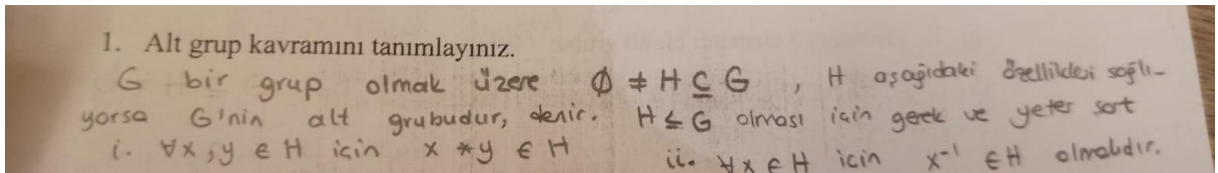 1. Alt grup kavramını tanımlayınız.
G bir grup olmak üzere ∅ ≠ H ⊆ G , H aşağıdaki özellikleri sağlı-
yorsa G'nin alt grubudur, denir. H ≤ G olması için gerek ve yeter şart
i. ∀x,y ∈ H için x * y ∈ H ii. ∀x ∈ H için x⁻¹ ∈ H olmalıdır.